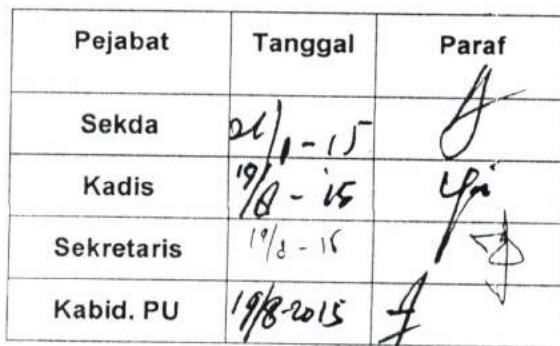 Pejabat Tanggal Paraf
Sekda
Kadis 19/8 - 15
Sekretaris 19/8 - 15
Kabid. PU 19/8-2015